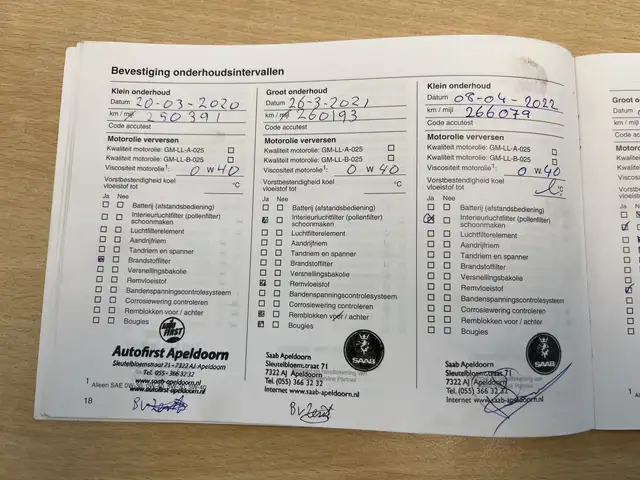 Bevestiging onderhoudsintervallen
Klein onderhoud
Datum 20-03-2020
km / mijl 250391
Code accutest
Motorolie verversen
Kwaliteit motorolie: GM-LL-A-025
Kwaliteit motorolie: GM-LL-B-025
Viscositeit motorolie1: 0 W 40
Vorstbestendigheid koel
vloeistof tot °C
Ja Nee
Batterij (afstandsbediening)
Interieurluchtfilter (pollenfilter)
schoonmaken
Luchtfilterelement
Aandrijfriem
Tandriem en spanner
Brandstoffilter
Versnellingsbakolie
Remvloeistof
Bandenspanningscontrolesysteem
Corrosiewering controleren
Remblokken voor / achter
Bougies
Autofirst Apeldoorn
Sleutelbloemstraat 71 - 7322 AJ Apeldoorn
Tel. 055 - 366 32 32
www.saab-apeldoorn.nl
www.autofirst-apeldoorn.nl
1 Alleen SAE
18
Groot onderhoud
Datum 26-3-2021
km / mijl 260193
Code accutest
Motorolie verversen
Kwaliteit motorolie: GM-LL-A-025
Kwaliteit motorolie: GM-LL-B-025
Viscositeit motorolie1: 0 W 40
Vorstbestendigheid koel
vloeistof tot °C
Ja Nee
Batterij (afstandsbediening)
Interieurluchtfilter (pollenfilter)
schoonmaken
Luchtfilterelement
Aandrijfriem
Tandriem en spanner
Brandstoffilter
Versnellingsbakolie
Remvloeistof
Bandenspanningscontrolesysteem
Corrosiewering controleren
Remblokken voor / achter
Bougies
SAAB
Saab Apeldoorn
Sleutelbloemstraat 71
7322 AJ Apeldoorn
Tel. (055) 366 32 32
Internet www.saab-apeldoorn.nl
Klein onderhoud
Datum 08-04-2022
km / mijl 266079
Code accutest
Motorolie verversen
Kwaliteit motorolie: GM-LL-A-025
Kwaliteit motorolie: GM-LL-B-025
Viscositeit motorolie1: 0 W 40
Vorstbestendigheid koel
vloeistof tot °C
Ja Nee
Batterij (afstandsbediening)
Interieurluchtfilter (pollenfilter)
schoonmaken
Luchtfilterelement
Aandrijfriem
Tandriem en spanner
Brandstoffilter
Versnellingsbakolie
Remvloeistof
Bandenspanningscontrolesysteem
Corrosiewering controleren
Remblokken voor / achter
Bougies
SAAB
Saab Apeldoorn
Sleutelbloemstraat 71
7322 AJ Apeldoorn
Tel. (055) 366 32 32
Internet www.saab-apeldoorn.nl